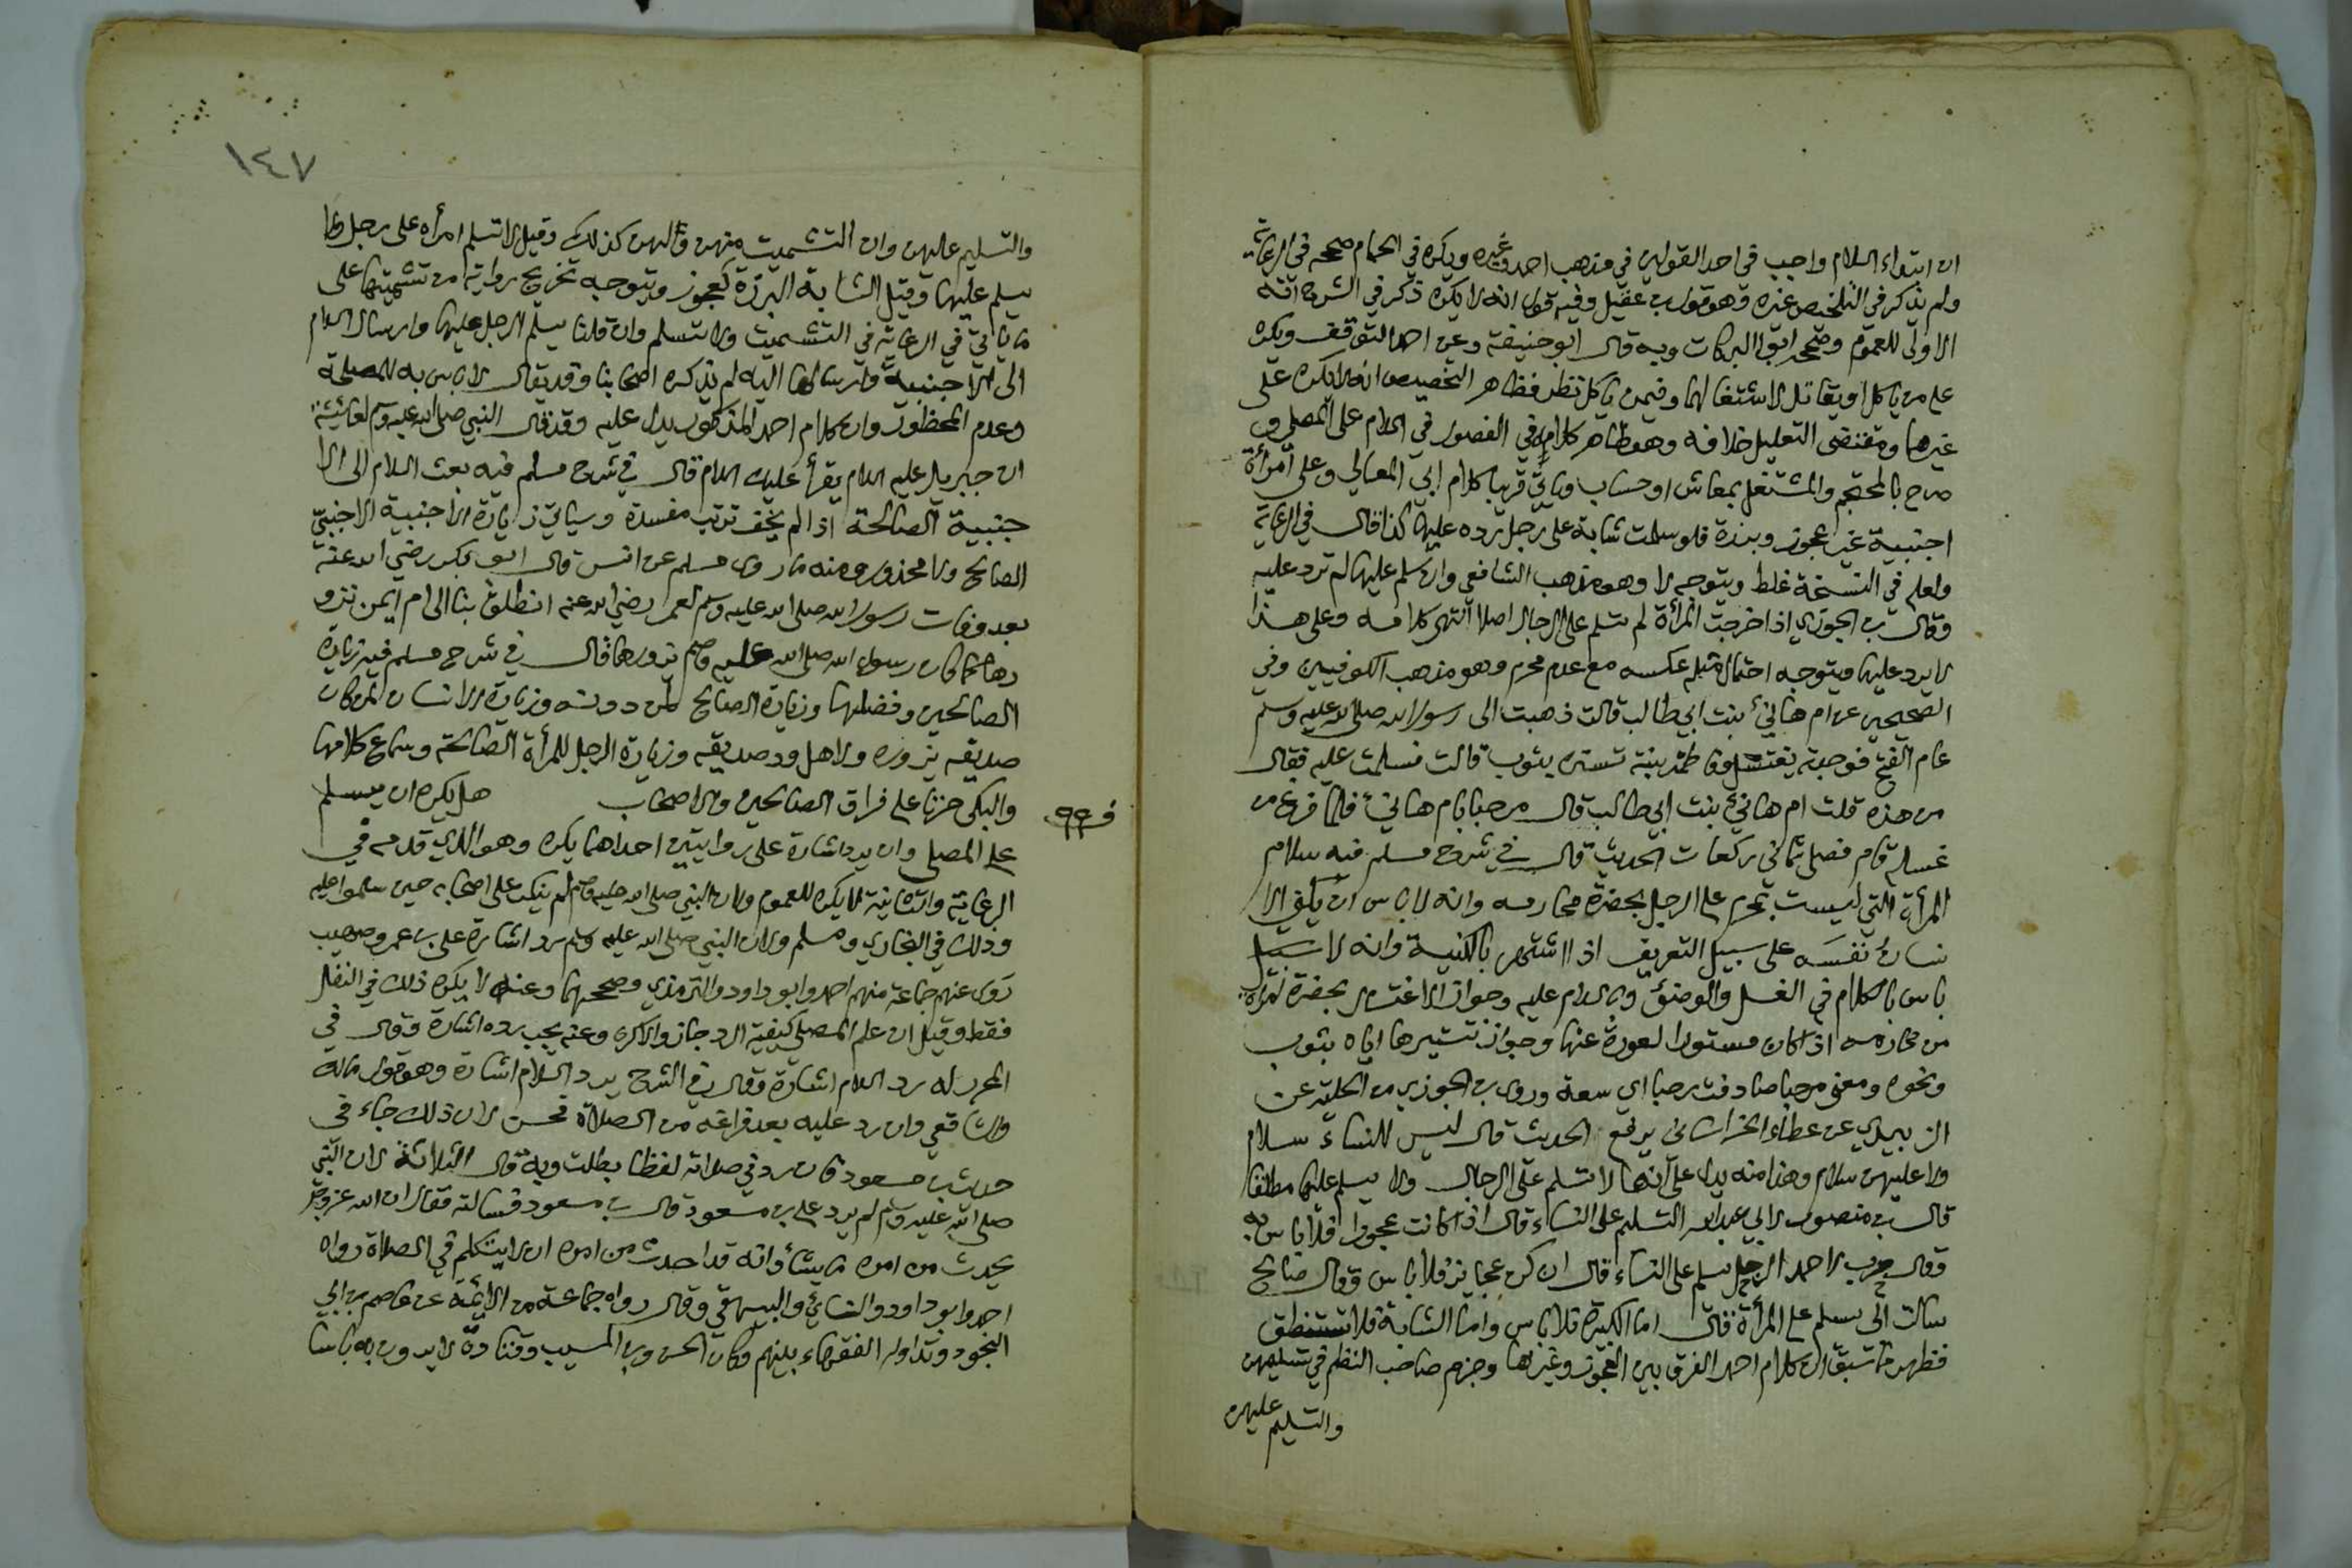 ان ابتداء السلام واجب في احد القولين في مذهب احمد وغيره ويكره في الحمام صححه في الرعاية
ولم يذكر في التلخيص غيره وهو قول بن عقيل وفيه قول انه لا يكره ذكر في الشرح انه
الاولى للعموم وصححه ابو البركات وبه قال ابو حنيفة وعن احمد التوقف ويكره
على من ياكل او يقاتل لاشتغالهما وفيمن ياكل نظر فظاهر التخصيص انه لا يكره على
غيرهما ومقتضى التعليل خلافه وهو ظاهر كلامه في الفصول في السلام على المصلي و
صرح بالمحتجم والمشتغل بمعاش او حساب وياتي قريبا كلام ابي المعالي وعلى امرأة
اجنبية غير عجوز وبرزة فلو سلمت شابة على رجل رده عليها كذا قال في الرعاية
ولعله في النسخة غلط ويتوجه لا وهو مذهب الشافعي وان سلم عليها لم ترد عليه
وقال بن الجوزي اذا خرجت المرأة لم تسلم على الرجال اصلا انتهى كلامه وعلى هذا
لا يرد عليها ويتوجه احتمال مثله عكسه مع عدم محرم وهو مذهب الكوفيين وفي
الصحيحين عن ام هانئ بنت ابي طالب قالت ذهبت الى رسول الله صلى الله عليه وسلم
عام الفتح فوجدته يغتسل وفاطمة بنته تستره بثوب قالت فسلمت عليه فقال
من هذه قلت ام هانئ بنت ابي طالب قال مرحبا بام هانئ فلما فرغ من
غسله قام فصلى ثماني ركعات الحديث قال في شرح مسلم فيه سلام
المرأة التي ليست بمحرم على الرجل بحضرة محارمه وانه لا باس ان يكني الا
نسان نفسه على سبيل التعريف اذا اشتهر بالكنية وانه لا
باس بالكلام في الغسل والوضوء وبالسلام عليه وجواز الاغتسال بحضرة امرأة
من محارمه اذا كان مستور العورة عنها وجواز تستيرها اياه بثوب
ونحوه ومعنى مرحبا صادفت رحبا اي سعة وروى بن الجوزي من الحلية عن
الزبيدي عن عطاء الخراساني يرفع الحديث قال ليس للنساء سلام
ولا عليهن سلام وهذا منه يدل على انها لا تسلم على الرجال ولا يسلم عليها مطلقا
قال بن منصور لابي عبد الله التسليم على النساء قال اذا كانت عجوزا فلا باس به
وقال حرب لاحمد الرجل يسلم على النساء قال ان كن عجايز فلا باس وقال صالح
سالت ابي يسلم على المرأة قال اما الكبيرة فلا باس واما الشابة فلا تستنطق
فظهر مما سبق ان كلام احمد الفرق بين العجوز وغيرها وجزم صاحب النظم في تسليمهن
والتسليم عليهن
١٤٧
والتسليم عليهن وان التشميت منهن ولهن كذلك وقيل لا تسلم امرأة على رجل ولا
يسلم عليها وقيل الشابة البرزة كعجوز ويتوجه تخريج رواية من تشميتها على
ما ياتي في الرعاية في التشميت ولا تسلم وان قلنا يسلم الرجل عليها وارسال السلام
الى الاجنبية وارسالها اليه لم يذكره اصحابنا وقد يقال لا باس به للمصلحة
وعدم المحظور وان كلام احمد المذكور يدل عليه وقد قال النبي صلى الله عليه وسلم لعائشة
ان جبريل عليه السلام يقرأ عليك السلام قال في شرح مسلم فيه بعث السلام الى الا
جنبية الصالحة اذا لم يخف ترتب مفسدة وسياتي زيارة الاجنبية الاجنبي
الصالح ولا محذور ومنه ما روى مسلم عن انس قال ابو بكر رضي الله عنه
بعد وفات رسول الله صلى الله عليه وسلم لعمر رضي الله عنه انطلق بنا الى ام ايمن نزو
رها كما كان رسول الله صلى الله عليه وسلم يزورها قال في شرح مسلم فيه زيارة
الصالحين وفضلها وزيارة الصالح لمن دونه وزيارة الانسان لمن كان
صديقه يزوره ولاهل ود صديقه وزيارة الرجل للمرأة الصالحة وسماع كلامها
والبكى حزنا على فراق الصالحين والاصحاب هل يكره ان يسلم
على المصلي وان يرد اشارة على روايتين احداهما يكره وهو الذي قدمه في
الرعاية والثانية لا يكره للعموم ولان النبي صلى الله عليه وسلم لم ينكر على اصحابه حين سلموا عليه
وذلك في البخاري ومسلم ولان النبي صلى الله عليه وسلم رد اشارة على بن عمر وصهيب
روى عنهم جماعة منهم احمد وابو داود والترمذي وصححهما وعنه لا يكره ذلك في النفل
فقط وقيل ان علم المصلي كيفية الرد جاز والا كره وعنه يجب رده اشارة وقال في
المحرر له رد السلام اشارة وقال في الشرح يرد السلام اشارة وهو قول مالك
والشافعي وان رد عليه بعد فراغه من الصلاة فحسن لان ذلك جاء في
حديث بن مسعود فان رد في صلاته لفظا بطلت وبه قال الثلاثة لان النبي
صلى الله عليه وسلم لم يرد على بن مسعود قال بن مسعود فسالته فقال ان الله عز وجل
يحدث من امره ما يشأ وانه قد احدث من امره ان لا يتكلم في الصلاة رواه
احمد وابو داود والنسائي والبيهقي وقال رواه جماعة من الائمة عن عاصم بن ابي
النجود وتداوله الفقهاء بينهم وكان الحسن وبن المسيب وقتادة لا يرون به باسا